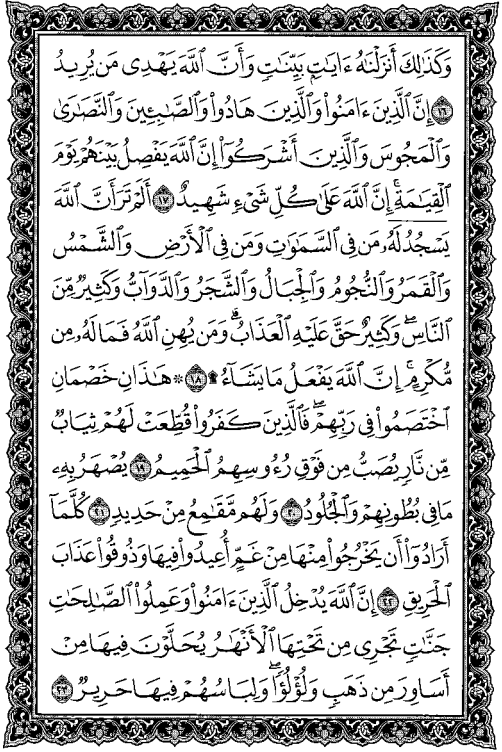 وَكَذَٰلِكَ أَنزَلْنَٰهُ ءَايَٰتٍۭ بَيِّنَٰتٍ وَأَنَّ ٱللَّهَ يَهْدِى مَن يُرِيدُ
١٦ إِنَّ ٱلَّذِينَ ءَامَنُوا۟ وَٱلَّذِينَ هَادُوا۟ وَٱلصَّٰبِـِٔينَ وَٱلنَّصَٰرَىٰ
وَٱلْمَجُوسَ وَٱلَّذِينَ أَشْرَكُوٓا۟ إِنَّ ٱللَّهَ يَفْصِلُ بَيْنَهُمْ يَوْمَ
ٱلْقِيَٰمَةِ ۚ إِنَّ ٱللَّهَ عَلَىٰ كُلِّ شَىْءٍ شَهِيدٌ ١٧ أَلَمْ تَرَ أَنَّ ٱللَّهَ
يَسْجُدُ لَهُۥ مَن فِى ٱلسَّمَٰوَٰتِ وَمَن فِى ٱلْأَرْضِ وَٱلشَّمْسُ
وَٱلْقَمَرُ وَٱلنُّجُومُ وَٱلْجِبَالُ وَٱلشَّجَرُ وَٱلدَّوَآبُّ وَكَثِيرٌ مِّنَ
ٱلنَّاسِ ۖ وَكَثِيرٌ حَقَّ عَلَيْهِ ٱلْعَذَابُ ۗ وَمَن يُهِنِ ٱللَّهُ فَمَا لَهُۥ مِن
مُّكْرِمٍ ۚ إِنَّ ٱللَّهَ يَفْعَلُ مَا يَشَآءُ ۩ ١٨ ۞ هَٰذَانِ خَصْمَانِ
ٱخْتَصَمُوا۟ فِى رَبِّهِمْ ۖ فَٱلَّذِينَ كَفَرُوا۟ قُطِّعَتْ لَهُمْ ثِيَابٌ
مِّن نَّارٍ يُصَبُّ مِن فَوْقِ رُءُوسِهِمُ ٱلْحَمِيمُ ١٩ يُصْهَرُ بِهِۦ
مَا فِى بُطُونِهِمْ وَٱلْجُلُودُ ٢٠ وَلَهُم مَّقَٰمِعُ مِنْ حَدِيدٍ ٢١ كُلَّمَآ
أَرَادُوٓا۟ أَن يَخْرُجُوا۟ مِنْهَا مِنْ غَمٍّ أُعِيدُوا۟ فِيهَا وَذُوقُوا۟ عَذَابَ
ٱلْحَرِيقِ ٢٢ إِنَّ ٱللَّهَ يُدْخِلُ ٱلَّذِينَ ءَامَنُوا۟ وَعَمِلُوا۟ ٱلصَّٰلِحَٰتِ
جَنَّٰتٍ تَجْرِى مِن تَحْتِهَا ٱلْأَنْهَٰرُ يُحَلَّوْنَ فِيهَا مِنْ
أَسَاوِرَ مِن ذَهَبٍ وَلُؤْلُؤًا ۖ وَلِبَاسُهُمْ فِيهَا حَرِيرٌ ٢٣